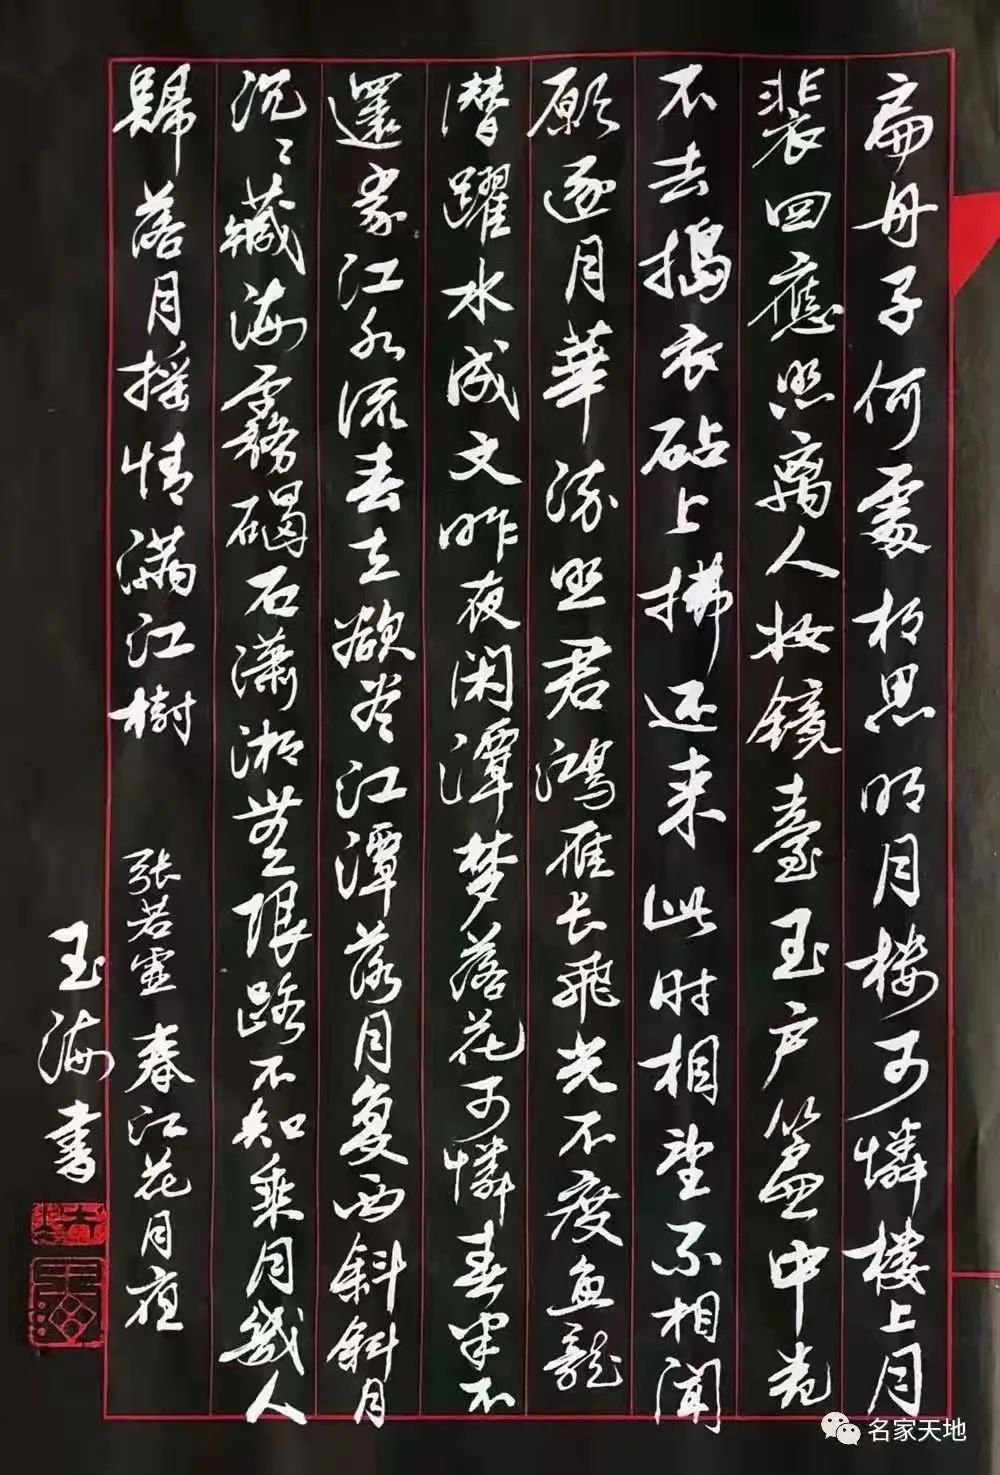 扁舟子何處相思明月楼可憐楼上月
裴回應照离人妆鏡臺玉户簾中卷
不去搗衣砧上拂还来此时相望不相闻
願逐月華流照君鴻雁长飛光不度鱼龍
潜躍水成文昨夜闲潭梦落花可憐春半不
還家江水流春去欲尽江潭落月复西斜斜月
沉沉藏海霧碣石瀟湘無限路不知乘月幾人
歸落月摇情满江樹
張若虚春江花月夜
玉海书
名家天地